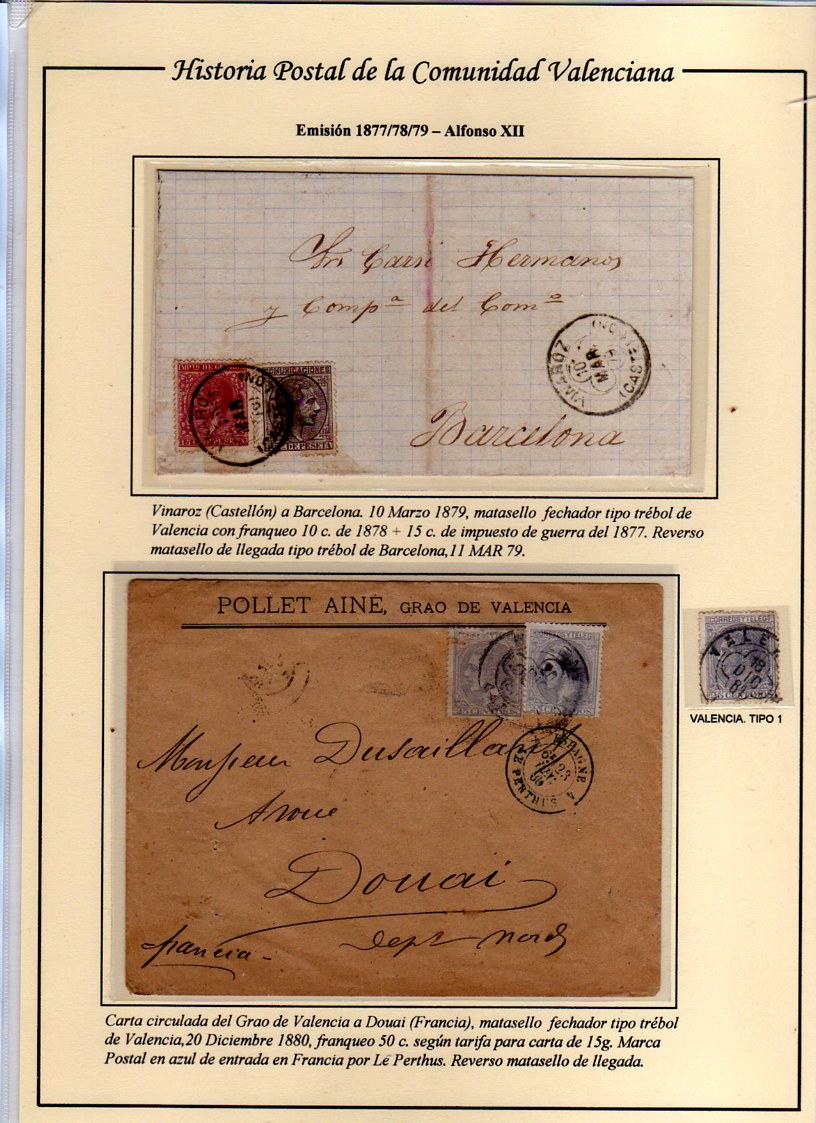 Historia Postal de la Comunidad Valenciana
Emisión 1877/78/79 – Alfonso XII
Srs Carsi Hermanos
y Comp.ª del Com.º
Barcelona
VINAROZ
(CASTELLON)
10
MAR
COMUNICACIONES
DE PESETA
VINAROZ
MAR
Vinaroz (Castellón) a Barcelona. 10 Marzo 1879, matasello fechador tipo trébol de
Valencia con franqueo 10 c. de 1878 + 15 c. de impuesto de guerra del 1877. Reverso
matasello de llegada tipo trébol de Barcelona,11 MAR 79.
POLLET AINE, GRAO DE VALENCIA
CORREOS Y TELEGS
VALEN
18
DIC
VALENCIA. TIPO 1
Monsieur Dusaillant
Avoué
Douai
francia
Dept Nord
ESPAGNE
LE PERTHUS
23
Carta circulada del Grao de Valencia a Douai (Francia), matasello fechador tipo trébol
de Valencia,20 Diciembre 1880, franqueo 50 c. según tarifa para carta de 15g. Marca
Postal en azul de entrada en Francia por Le Perthus. Reverso matasello de llegada.